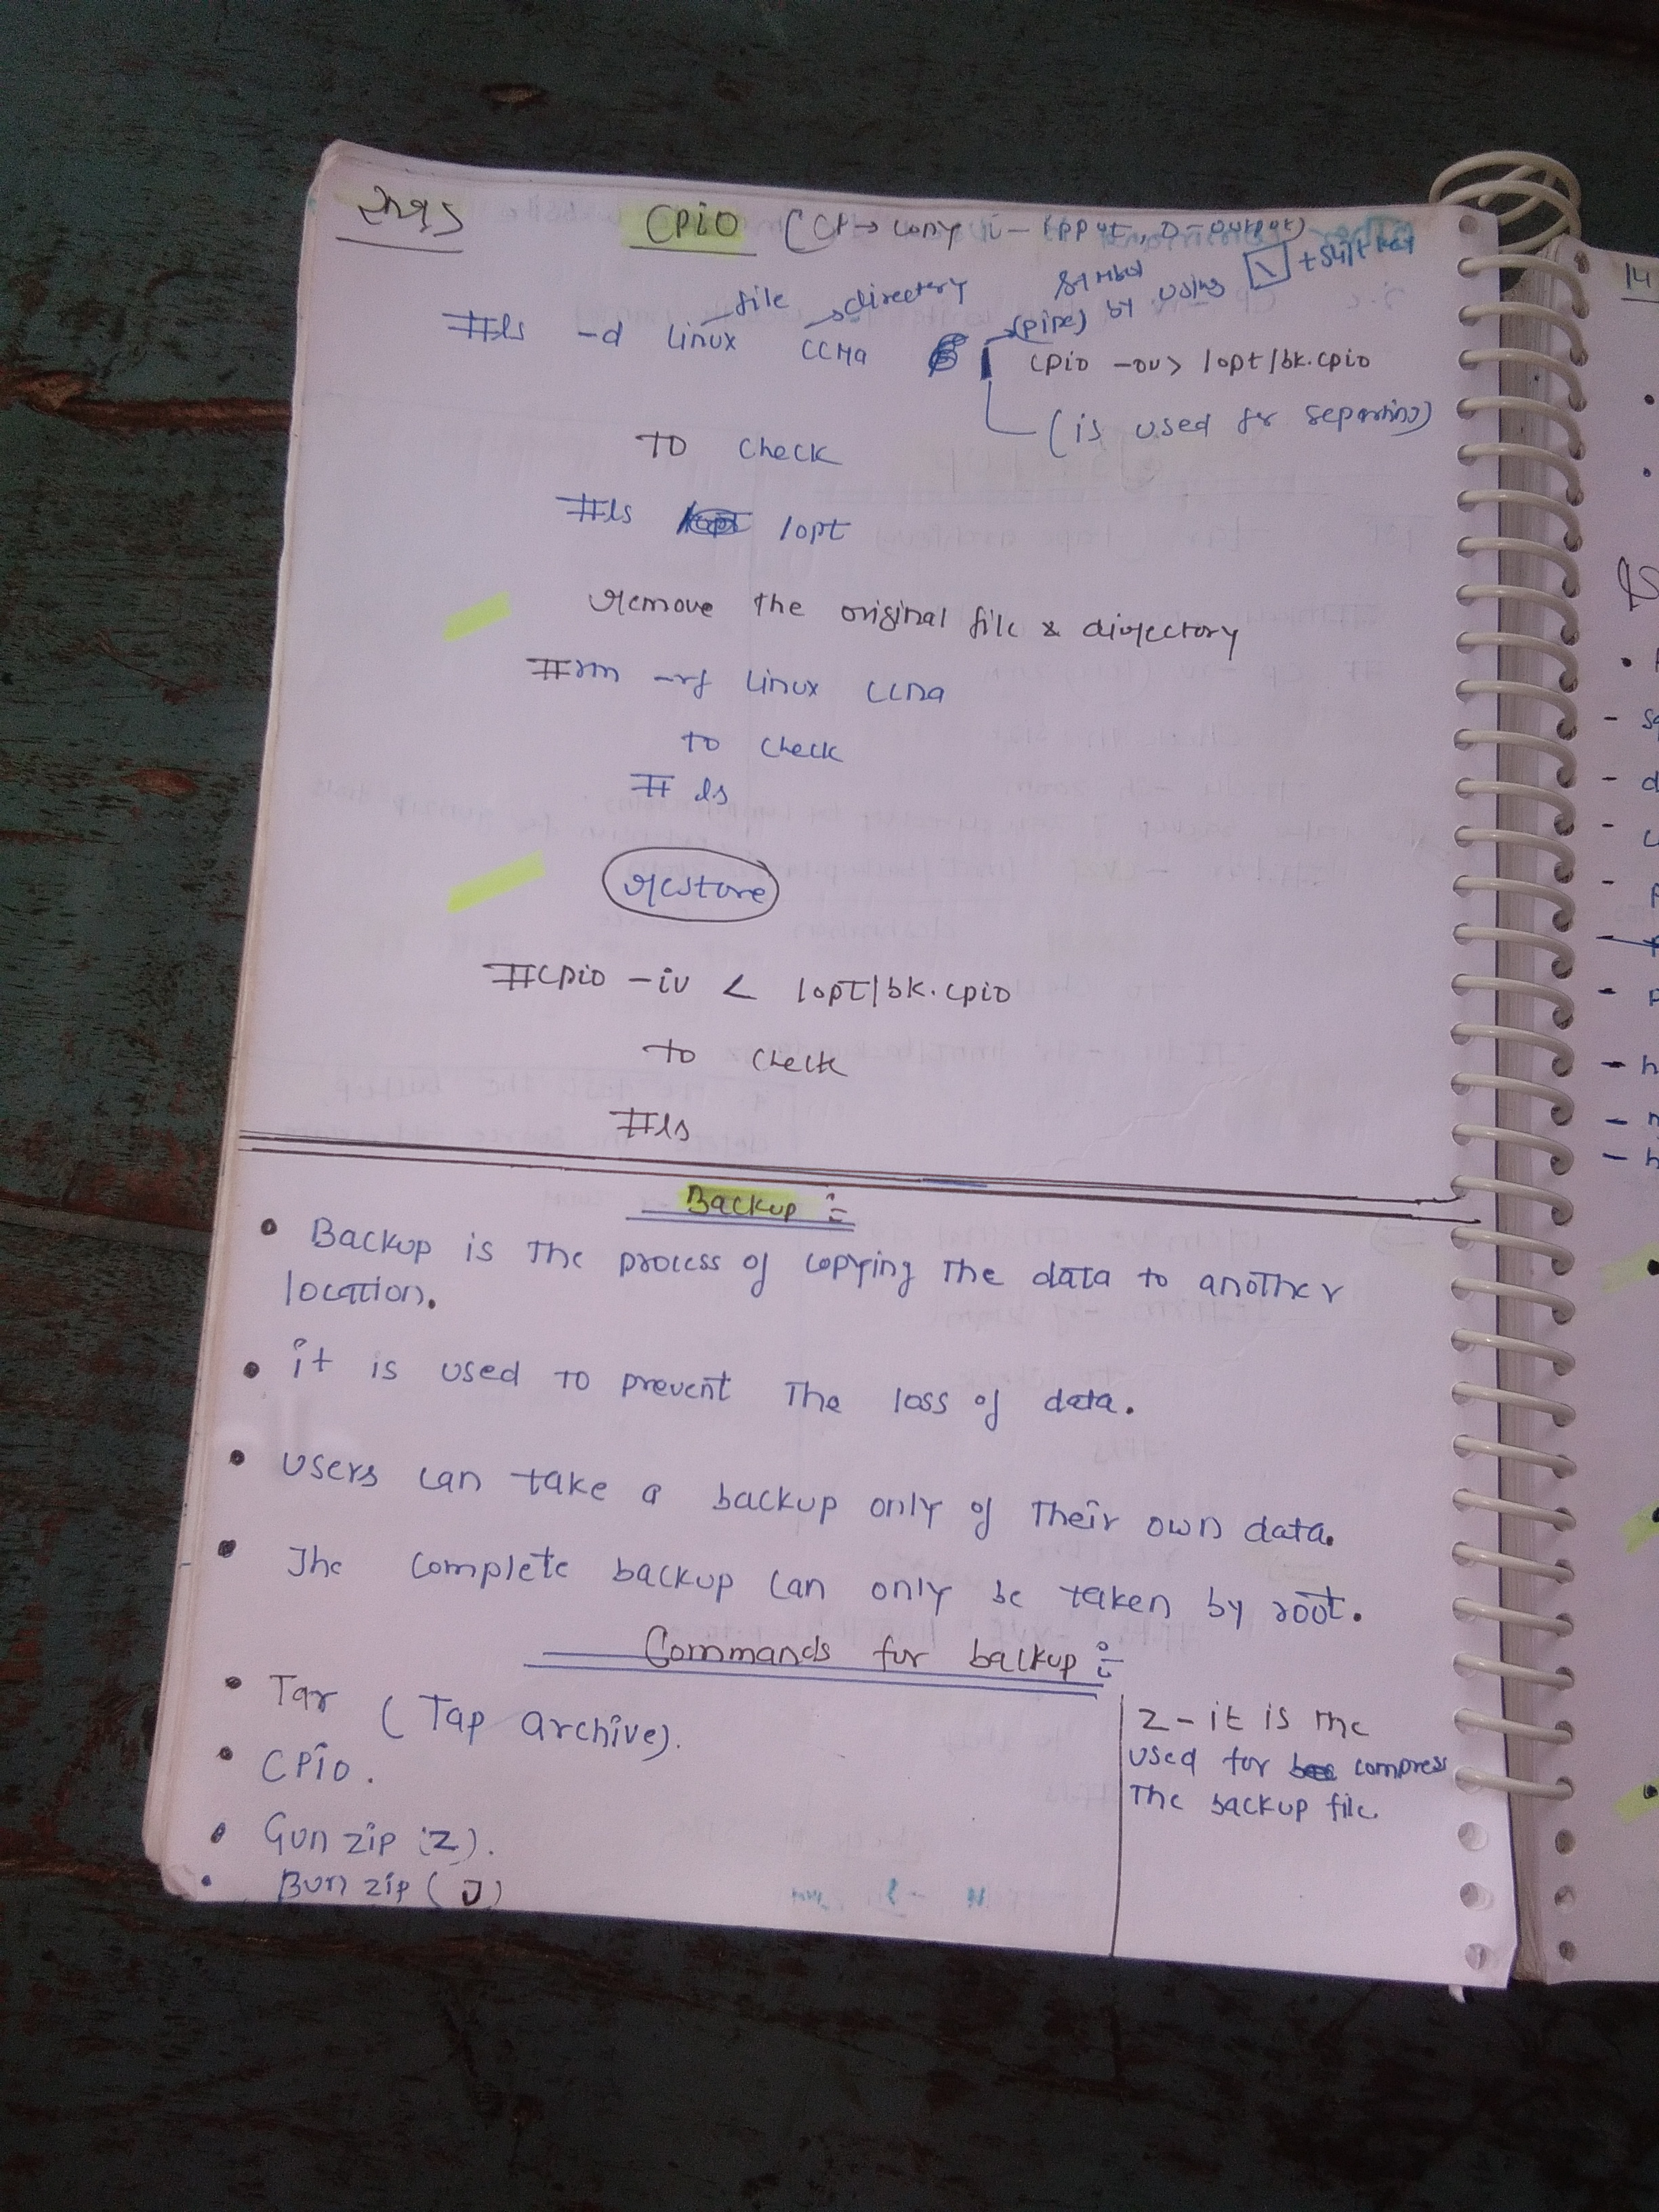 CPiO (CP→ copy i- ipput, O-output)
file directory symbol
(pipe) by using \ + Shift key
#ls -d Linux CCNa | cpio -ov> /opt/bk.cpio
(is used for separting)
TO check
#ls /opt
remove the original file & directory
#rm -rf Linux CCNa
to check
# ls
restore
#cpio -iv < /opt/bk.cpio
to check
#ls
Backup :-
• Backup is The process of copying The data to another
location.
• it is used TO prevent The loss of data.
• users can take a backup only of Their own data.
• The complete backup can only be taken by root.
Commands for backup :-
• Tar (Tap archive).
• CPio.
• Gun zip (Z).
• Bun zip (J)
Z - it is The
used for compress
The backup file.
14